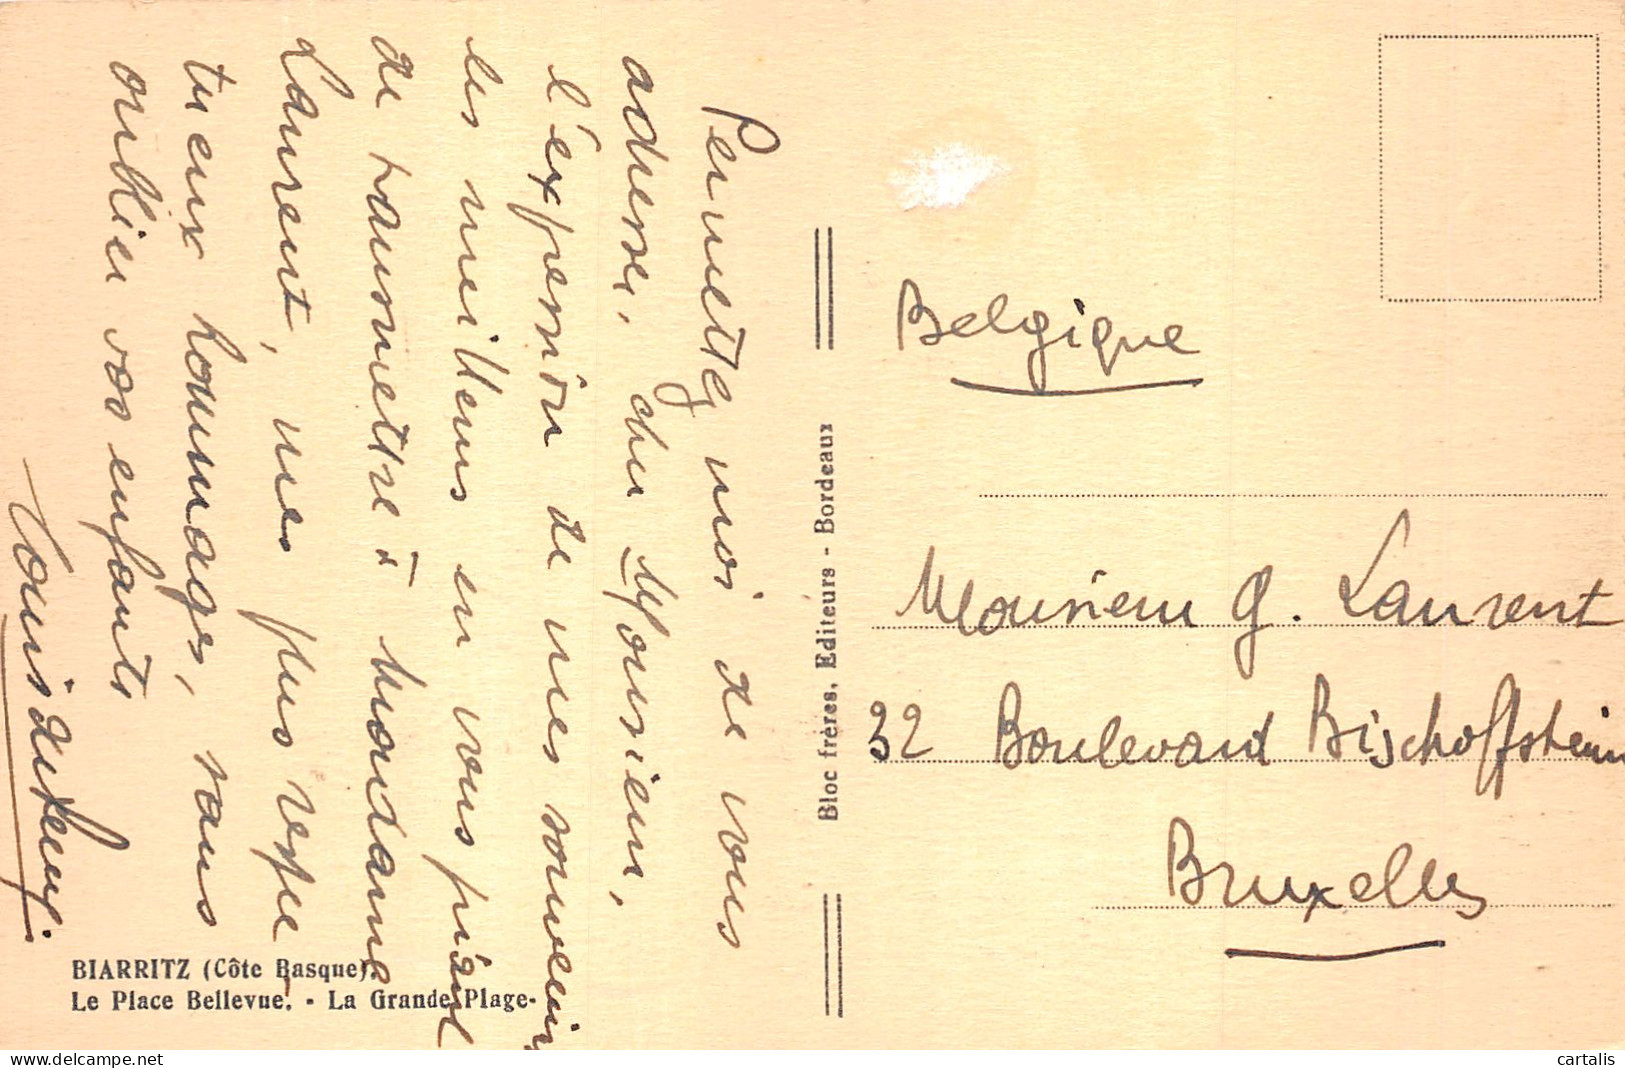 Permettez moi de vous
adresser, cher Monsieur,
l'expression de mes souvenirs
les meilleurs en vous priant
de transmettre à Madame
Laurent, mes plus respec
tueux hommages, sans
oublier vos enfants
Louis
BIARRITZ (Côte Basque).
Le Place Bellevue. - La Grande Plage-
Bloc frères, Editeurs - Bordeaux
Belgique
Monsieur G. Laurent
32 Boulevard Bischoffsheim
Bruxelles
cartalis